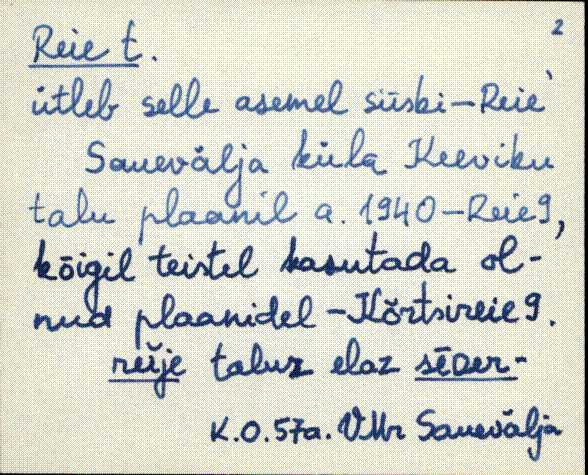 2
Reie t.
ütleb selle asemel siiski – Reie`
Sauevälja küla Keeviku
talu plaanil a. 1940 – Reie 9,
kõigil teistel kasutada ol-
nud plaanidel – Kõrtsireie 9.
reije taluz elaz
K.O. 57a. VMr Sauevälja